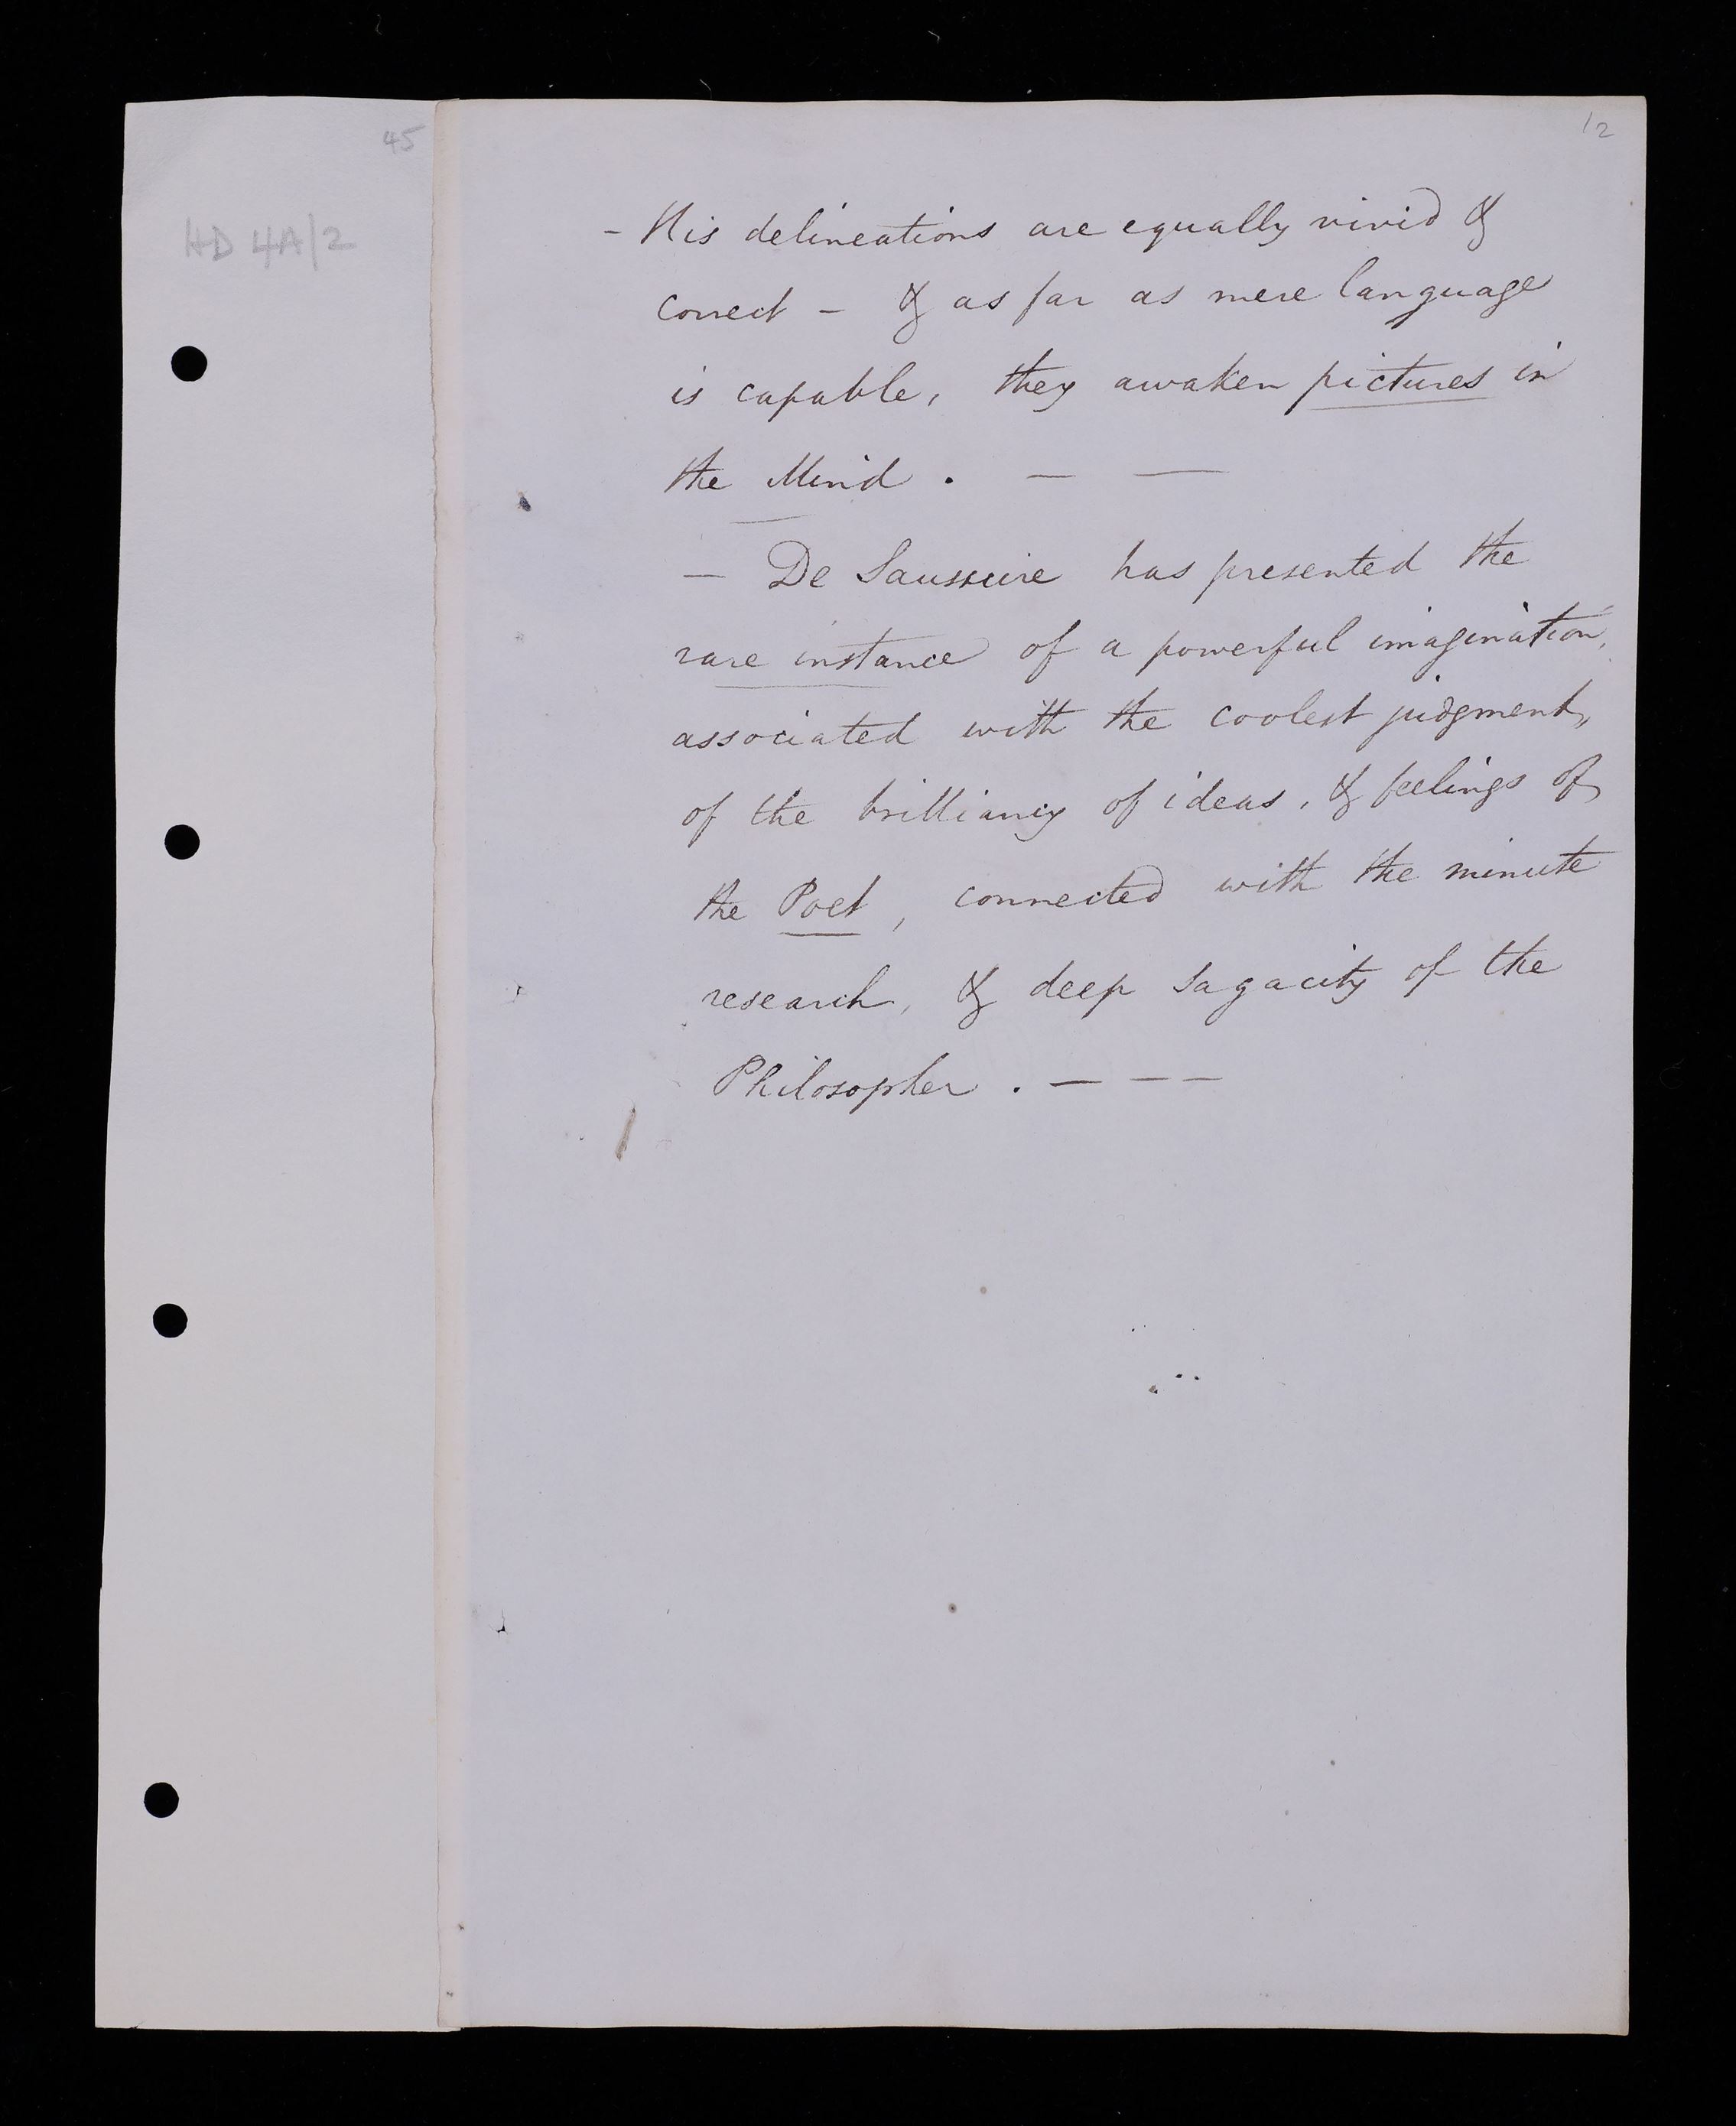 45
12
HD 4A/2
- His delineations are equally vivid &
correct - & as far as mere language
is capable, they awaken pictures in
the Mind . — —
— De Saussure has presented the
rare instance of a powerful imagination,
associated with the coolest judgment,
of the brilliancy of ideas, & feelings of
the Poet, connected with the minute
research, & deep sagacity of the
Philosopher . — — —